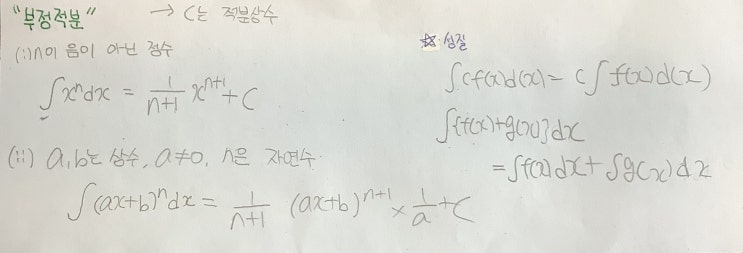 "부정적분" → C는 적분상수
(i) n이 음이 아닌 정수
∫xⁿdx = 1/(n+1) xⁿ⁺¹+C
(ii) a,b는 상수, a≠0, n은 자연수
∫(ax+b)ⁿdx = 1/(n+1) (ax+b)ⁿ⁺¹ × 1/a +C
☆ 성질
∫cf(x)d(x) = c∫f(x)d(x)
∫{f(x)+g(x)}dx
=∫f(x)dx+∫g(x)dx